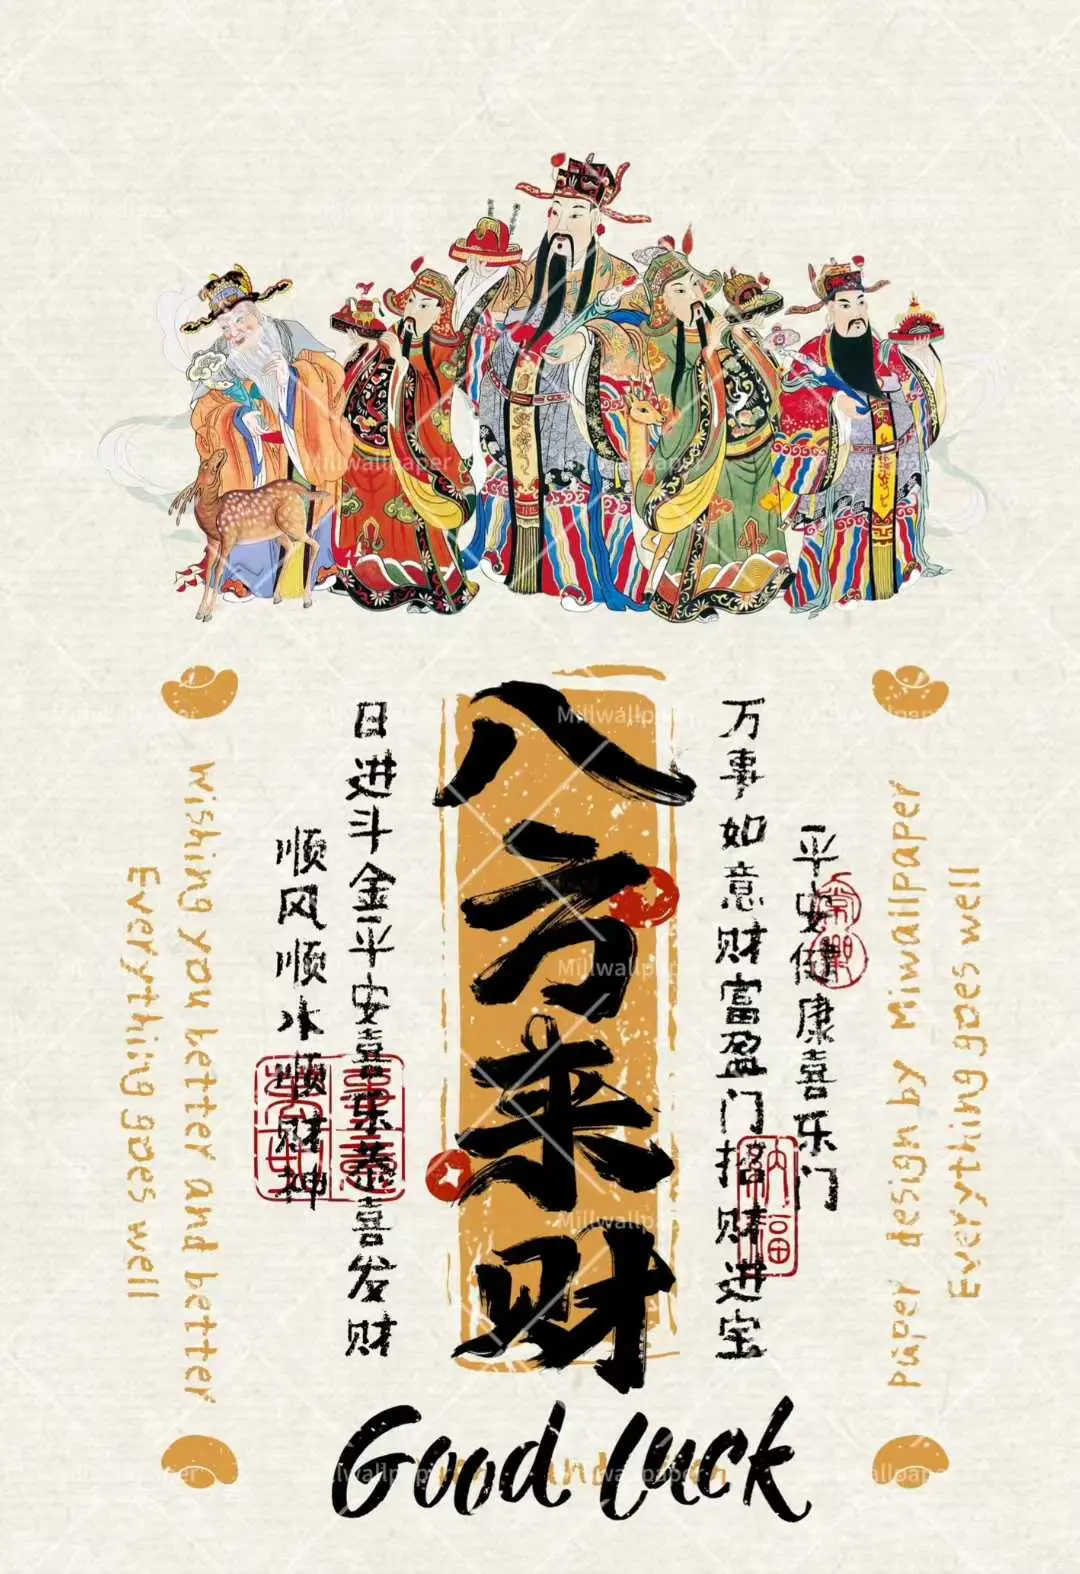 八方来财
万事如意财富盈门招财进宝
平安健康喜乐门
日进斗金平安喜乐恭喜发财
顺风顺水顺财神
纳福
wishing you better and better
Everything goes well
paper design by Miwailpaper
Everything goes well
Good luck
Millwallpaper
Millwallpaper
Millwallpaper
Millwallpaper
Millwallpaper